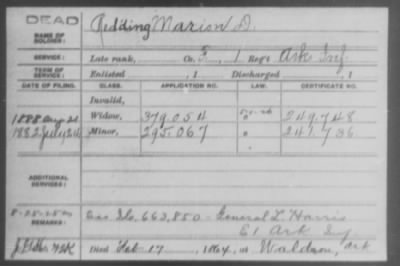 DEAD
NAME OF SOLDIER: Redding Marion D.
SERVICE: Late rank, Co. F, 1 Reg't Ark Inf.
TERM OF SERVICE: Enlisted , 1 Discharged , 1
DATE OF FILING. CLASS. APPLICATION NO. LAW. CERTIFICATE NO.
Invalid,
1888 Aug 21 Widow, 379.054 " 249.748
1882 July 24 Minor, 295.067 " 241.736
ADDITIONAL SERVICES:
8-25-25
REMARKS: No. 663,850 - General L. Harris
E 1 Ark Inf.
Died Feb 17, 1864, at Waldron, Ark